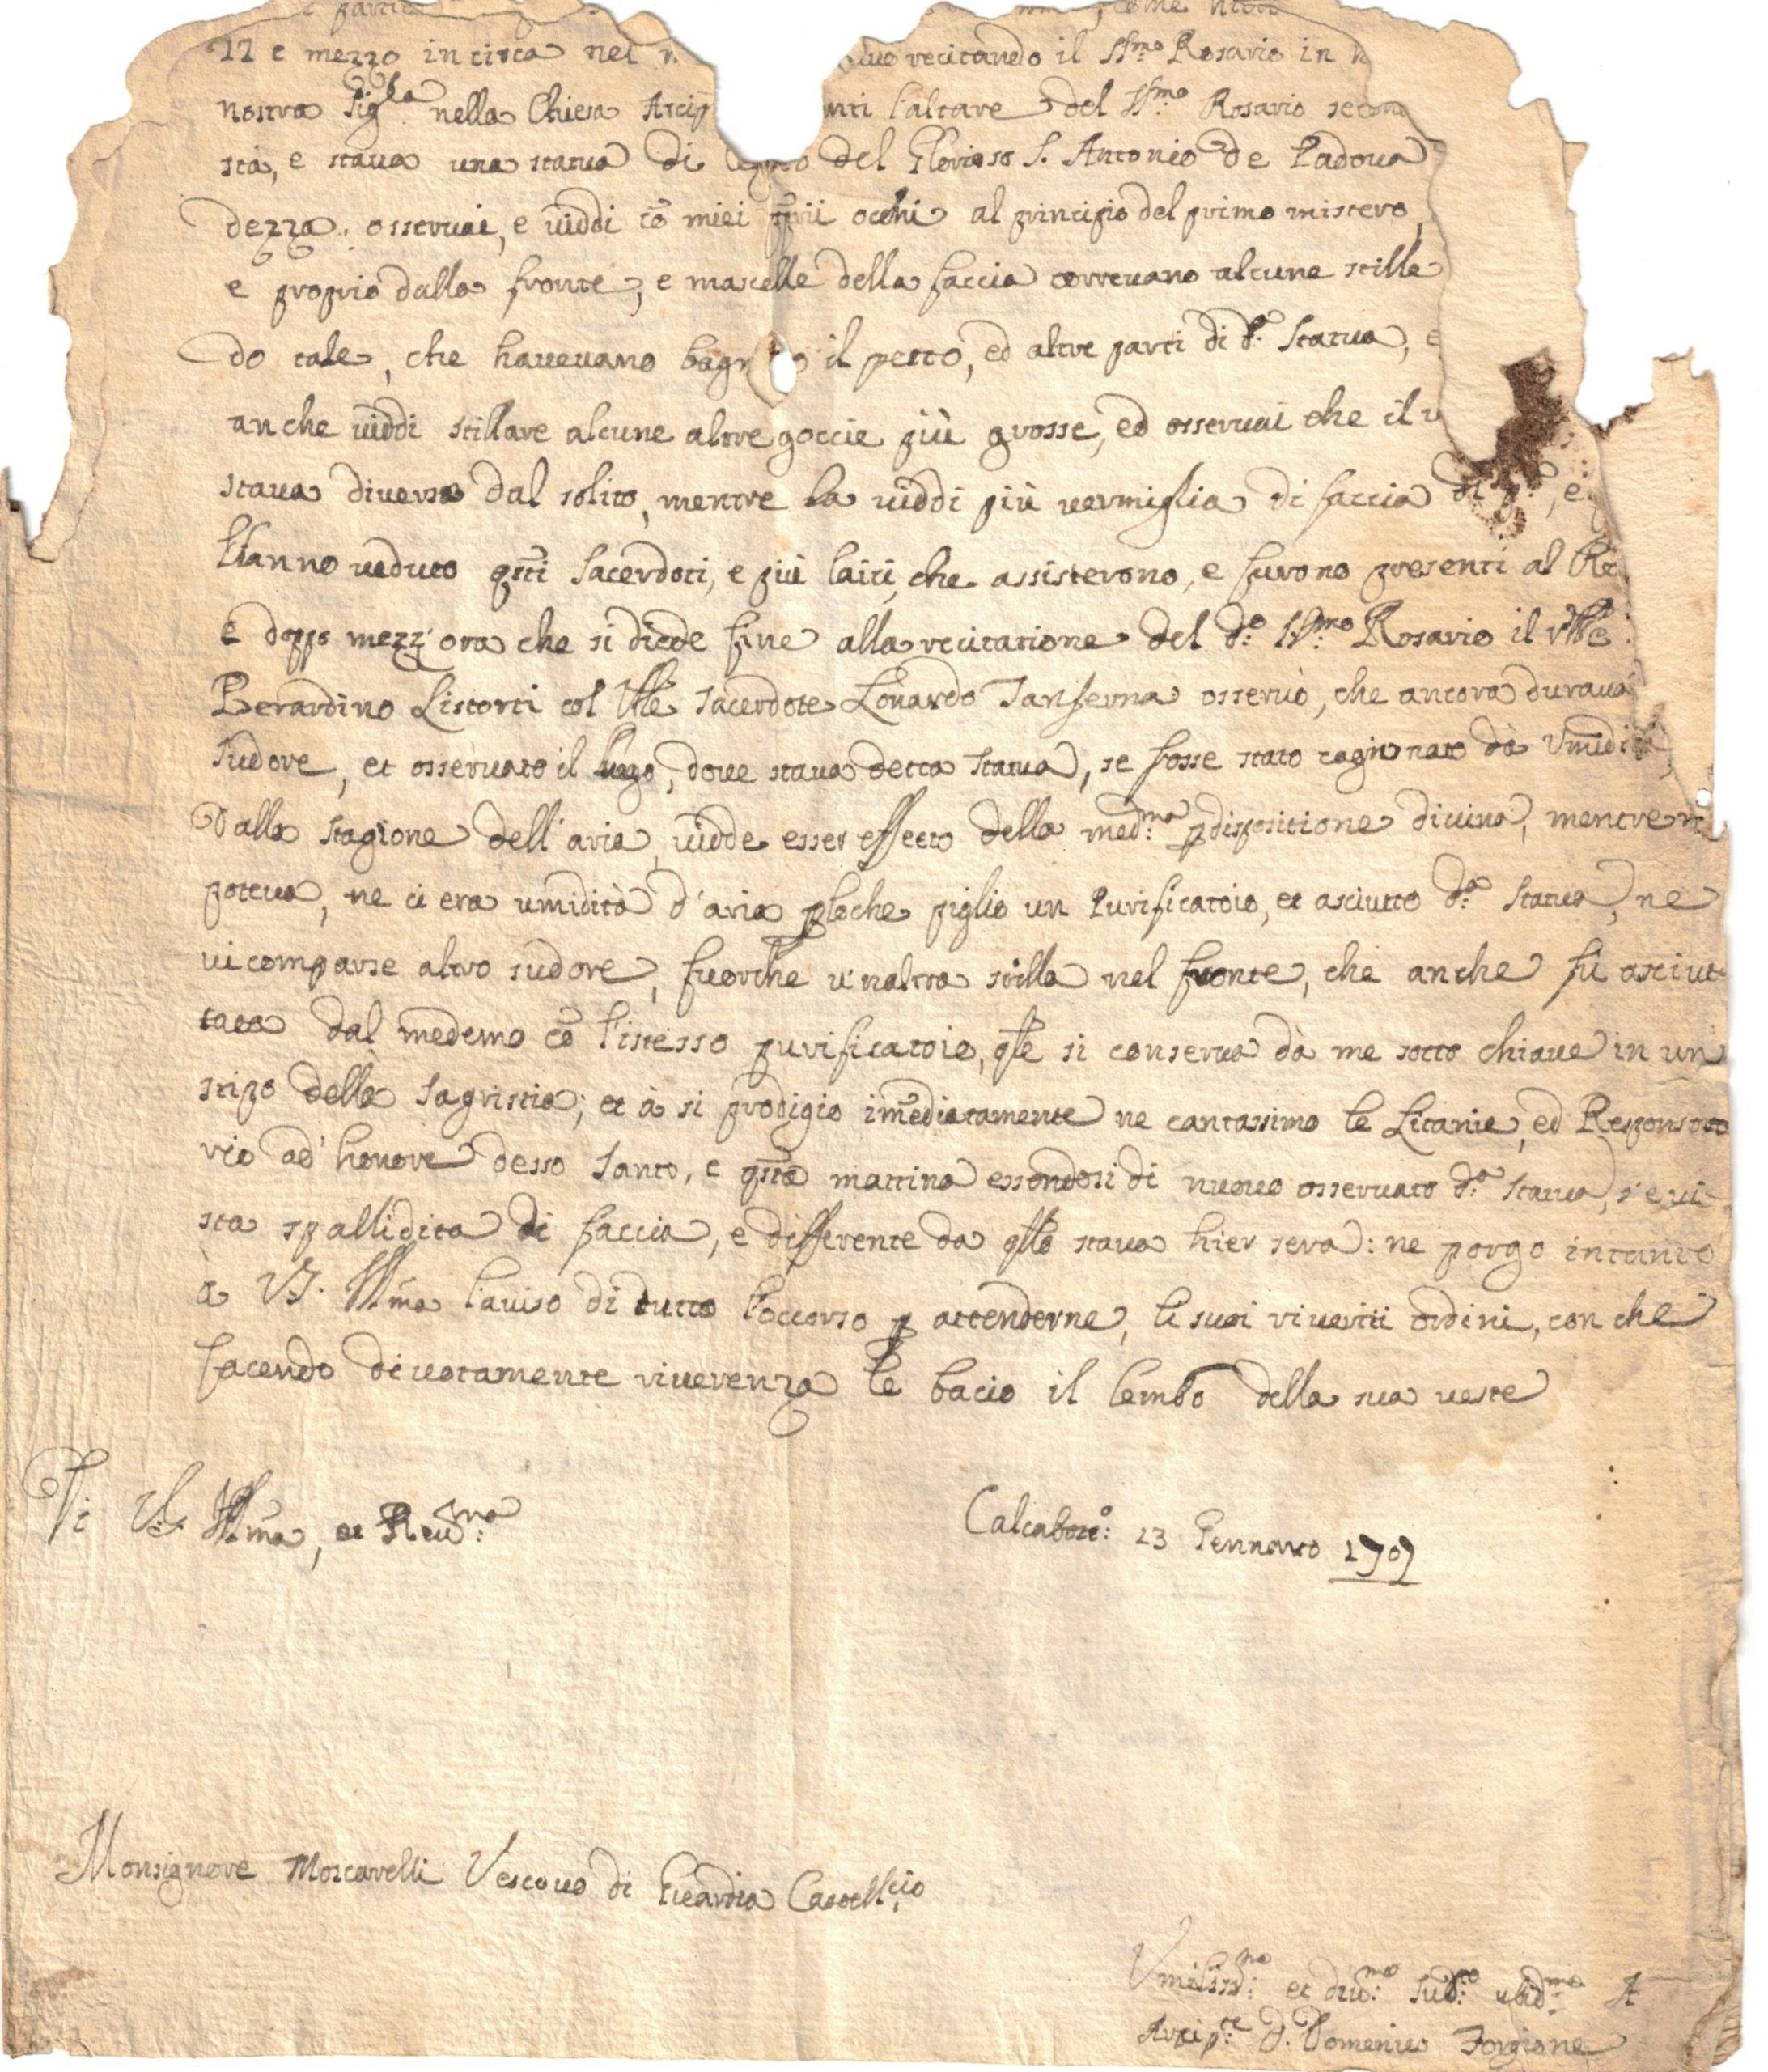 22 e mezzo in circa nel recitando il SS.mo Rosario in
nostra nella Chiesa Arcip l'altare del SS.mo Rosario
stà, e staua una statua di del Glorioso S. Antonio de Padoua
dezza. osseruai, e uiddi cō miei occhi al principio del primo mistero,
e proprio dalla fronte, e mascelle della faccia correuano alcune stille
do tale, che haueuano il petto, ed altre parti di d.a Statua, e
anche uiddi stillare alcune altre goccie più grosse, ed osseruai che il
staua diuersa dal solito, mentre la uiddi più uermiglia di faccia
Hanno ueduto qsti Sacerdoti, e più laici, che assisterono, e furono presenti al
e doppo mezz'ora che si diede fine alla recitatione del d.o SS.mo Rosario il
Berardino Listorti col Sacerdote Lonardo Tanserna osseruò, che ancora duraua
sudore, et osseruato il, doue staua detta Statua, se fosse stato cagionato dà
dalla stagione dell'aria, uidde esser effetto della med.ma pdispositione diuina, mentre
poteua, ne ci era umidità d'aria ploche piglio un Purificatoio, et asciutto d.a Statua, ne
ui comparse altro sudore, fuorche u'naltra stilla nel fronte, che anche fù asciut
tata dal medemo cō l'istesso purificatoio, qle si conserua dà me sotto chiaue in un
stipo della Sagristia; et à si prodigio imēdiatamente ne cantassimo le Litanie, ed Responso
rio ad honore desso Santo, e qsta mattina essendosi di nuouo osseruato d.a Statua, s'e ui
sta spallidita di faccia, e differente da staua hier sera: ne porgo intanto
à V.S. Ill.ma l'auiso di tutto l'occorso p attenderne, li suoi riueriti ordini, con che
facendo diuotamente riuerenza le bacio il lembo della sua ueste
Di V.S. Ill.ma, et Reu.ma
Calcabott.o: 23 Gennaro 1707
Monsignore Moscarelli Vescouo di Guardia
Umiliss.mo et diu.mo
Arcip.te D. Domenico Forgione